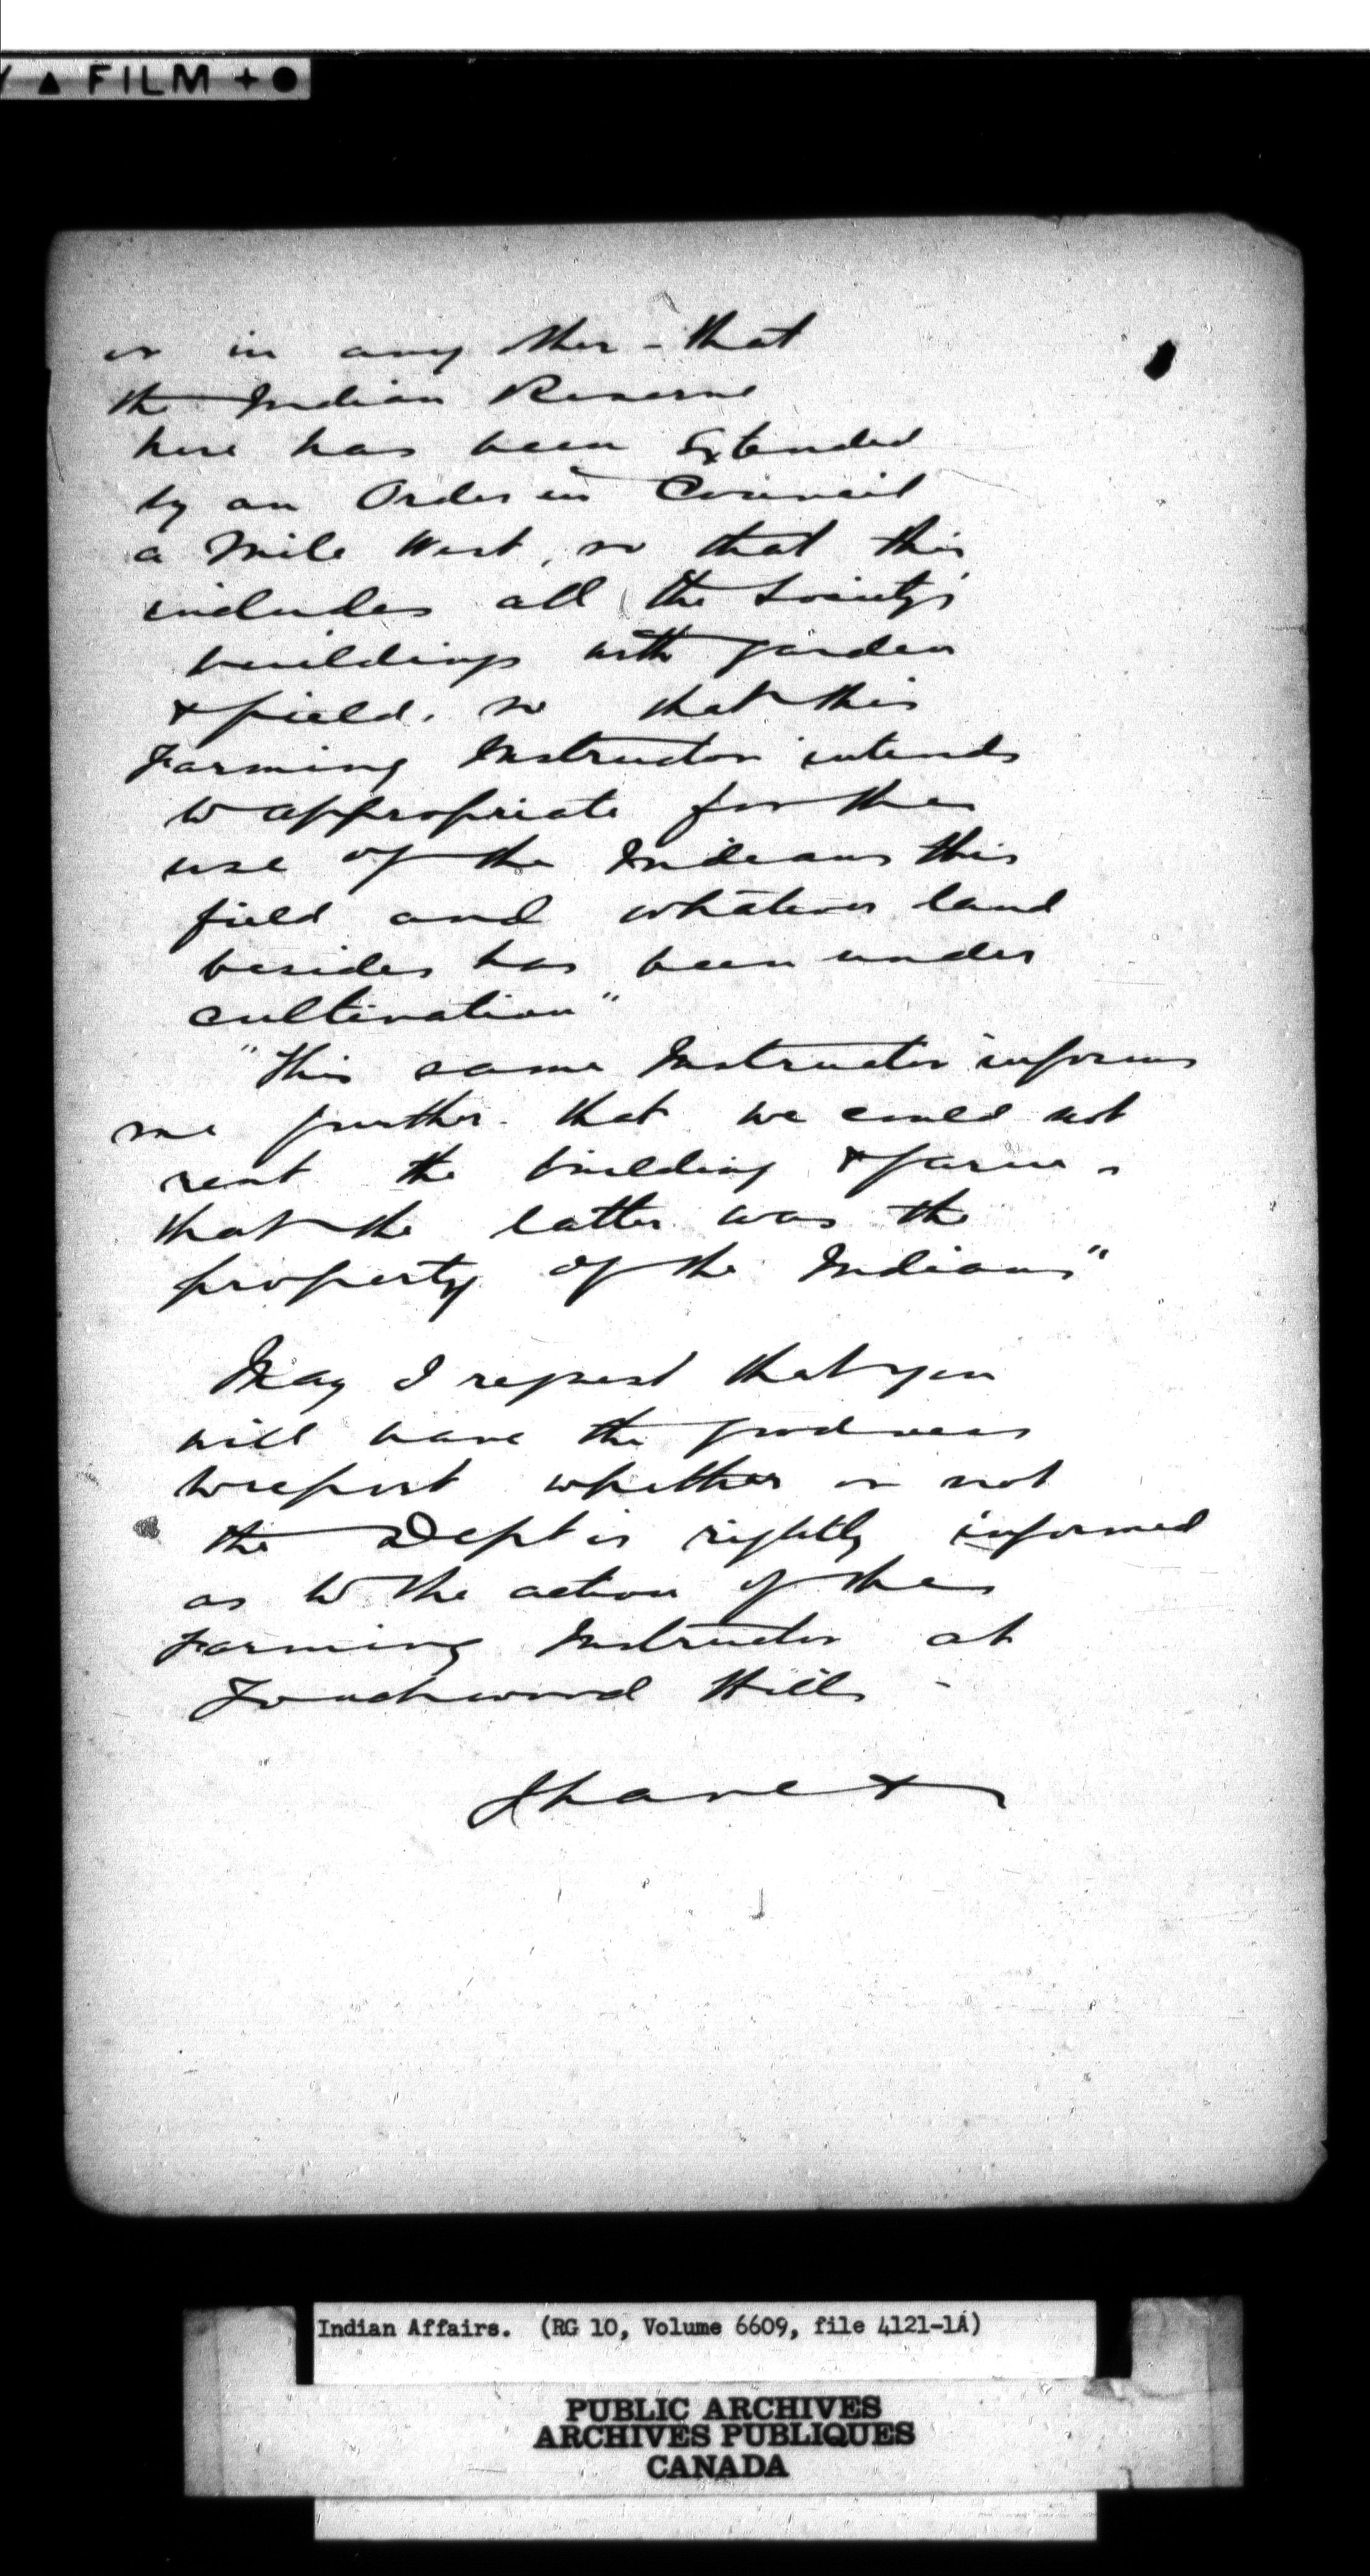 Y ▲ FILM + ●
or in any other - that
the Indian Reserve
here has been Extended
by an Order in Council
a Mile West, so that this
includes all the Society's
buildings with garden
& field. so that this
Farming Instructor intends
to appropriate for the
use of the Indians this
field and whatever land
besides has been under
cultivation"
"This same Instructor informs
me further. that we could not
rent the building & farm -
that the latter was the
property of the Indians"
May I request that you
will have the goodness
to report whether or not
the Dept is rightly informed
as to the action of the
Farming Instructor at
Touchwood Hills -
I have &
Indian Affairs. (RG 10, Volume 6609, file 4121-1A)
PUBLIC ARCHIVES
ARCHIVES PUBLIQUES
CANADA